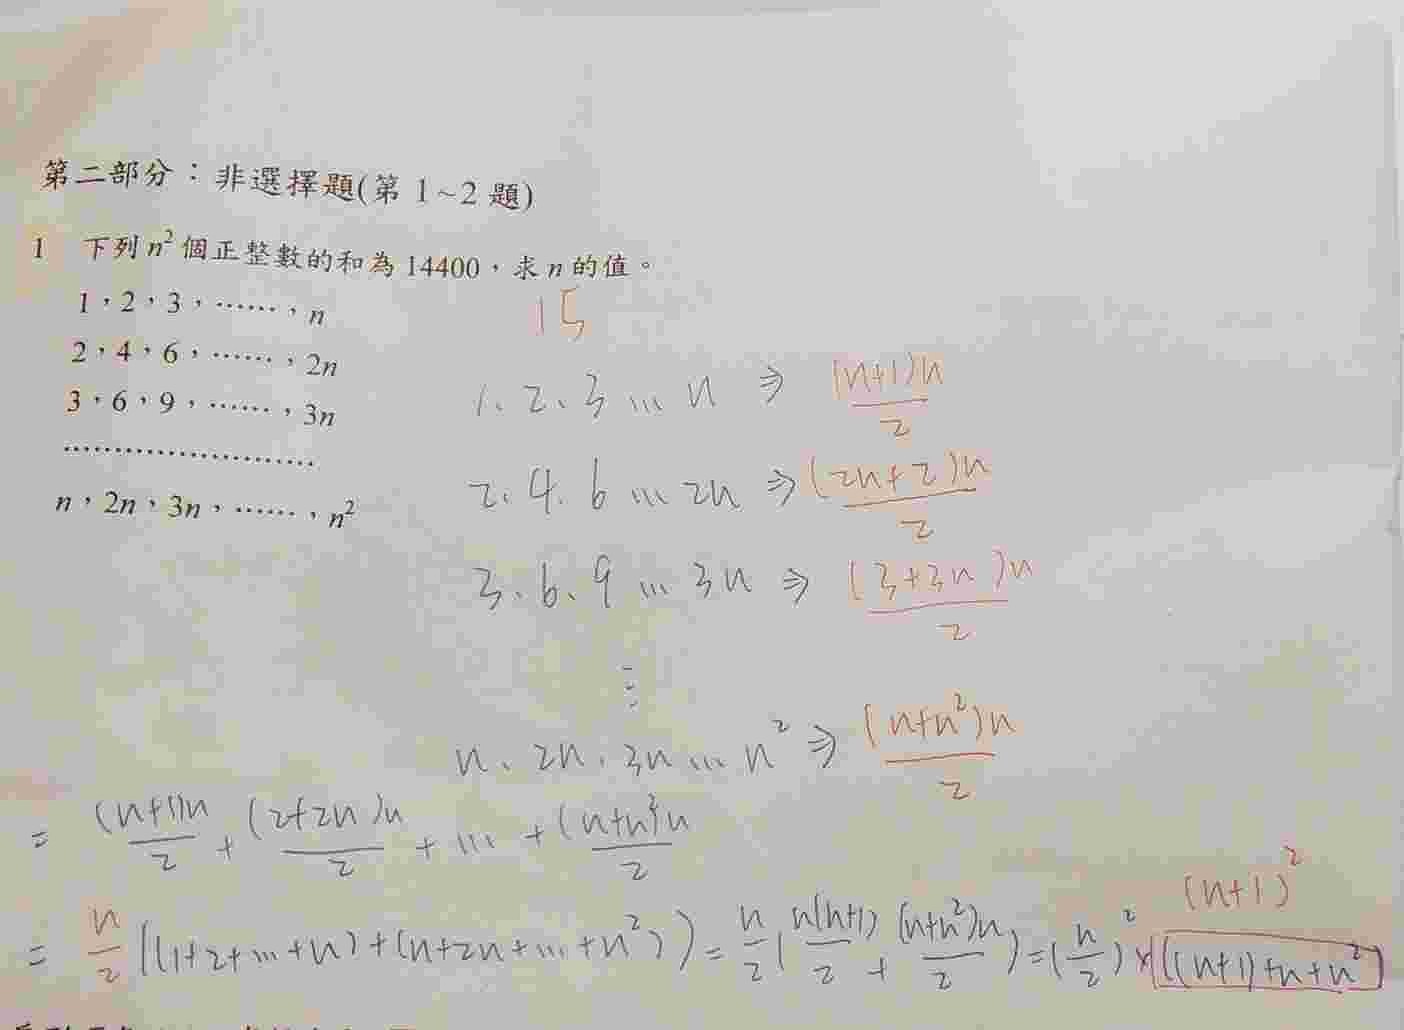 第二部分：非選擇題(第 1~2 題)
1 下列 n² 個正整數的和為 14400，求 n 的值。
15
1，2，3，……，n
2，4，6，……，2n
3，6，9，……，3n
…………………
n，2n，3n，……，n²
1、2、3 … n ⇒ (n+1)n/2
2、4、6 … 2n ⇒ (2n+2)n/2
3、6、9 … 3n ⇒ (3+3n)n/2
⋮
n、2n、3n … n² ⇒ (n+n²)n/2
= (n+1)n/2 + (2+2n)n/2 + … + (n+n²)n/2
(n+1)²
= n/2 ((1+2+…+n)+(n+2n+…+n²)) = n/2 (n(n+1)/2 + (n+n²)n/2) = (n/2)² × ((n+1)+n+n²)